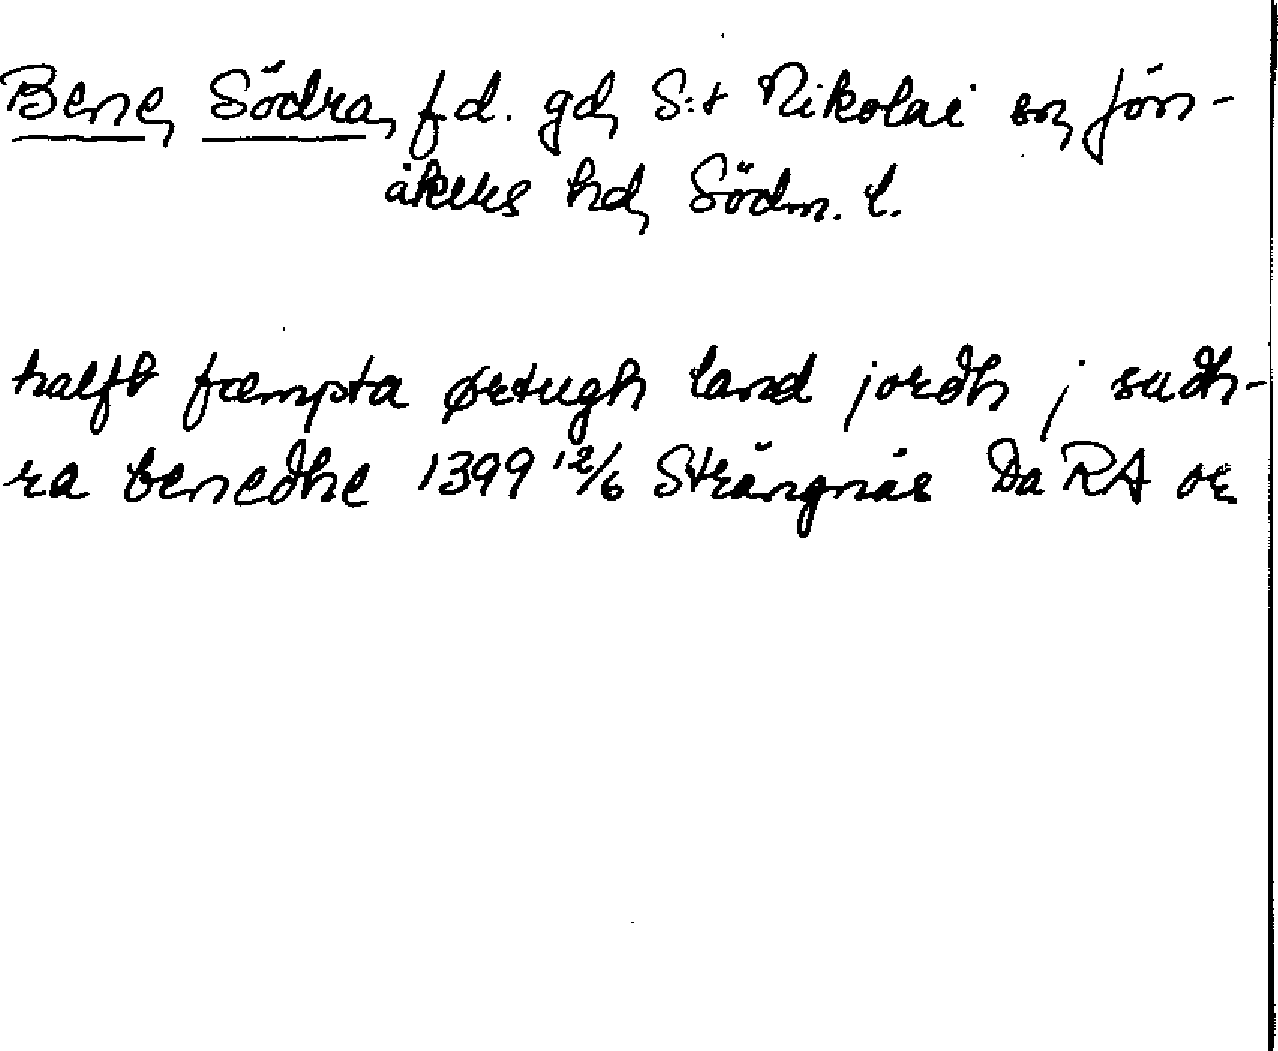 Bene, Södra, f.d. gd, S:t Nikolai sn, Jön-
åkers hd, Södm. l.
halft fæmpta ørtugh land jordh j sudh-
ra benedhe 1399 12/6 Strängnäs Da RA or